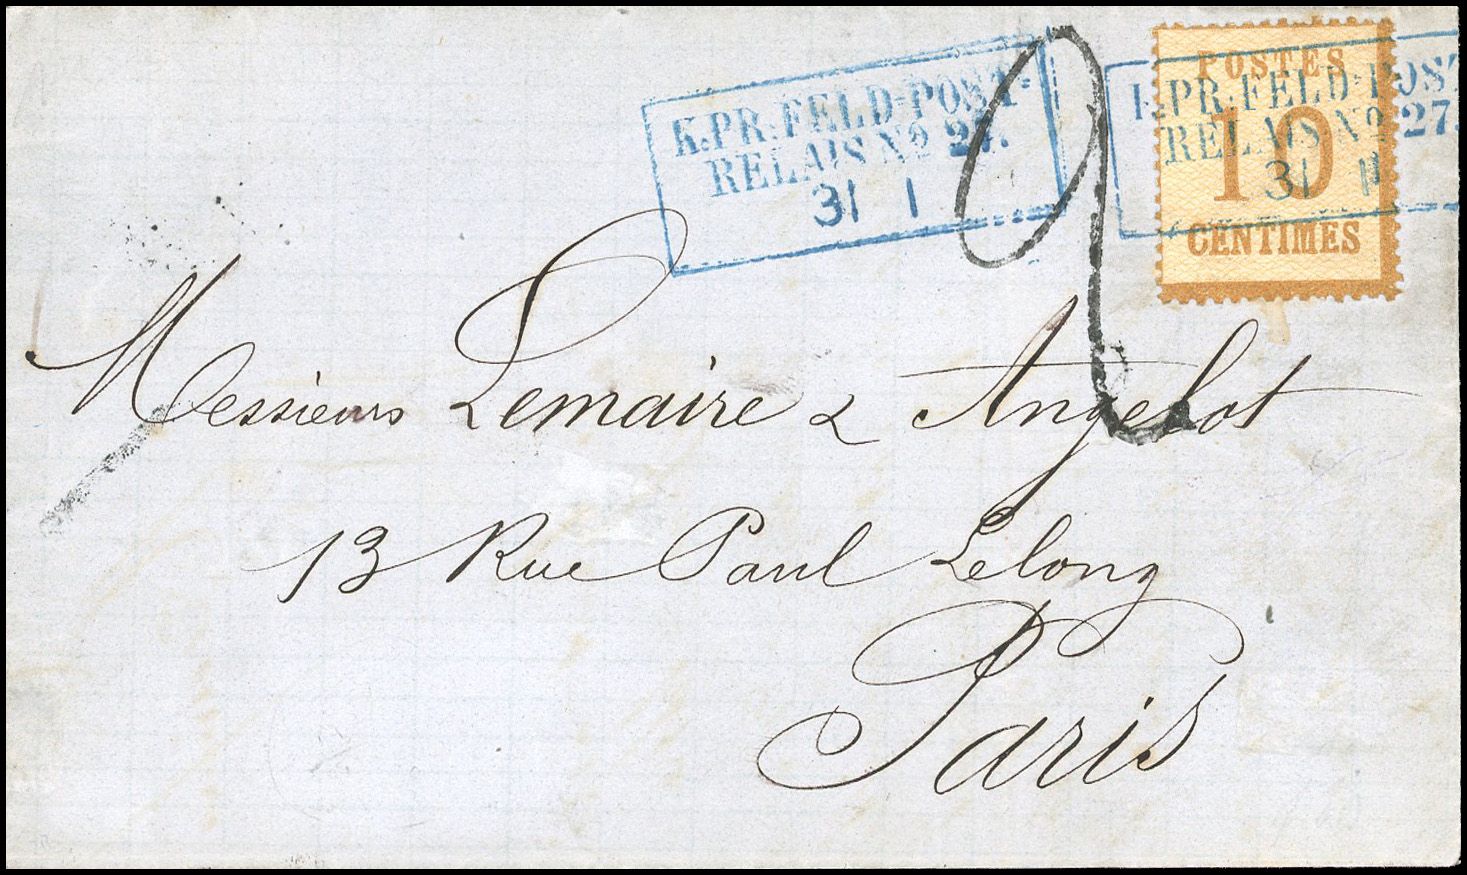 K.PR.FELD-POST-
RELAIS No 27.
31 1
2
POSTES
10
CENTIMES
K.PR.FELD-POST
RELAIS No 27.
31 1
Messieurs Lemaire & Angelot
13 Rue Paul Lelong
Paris